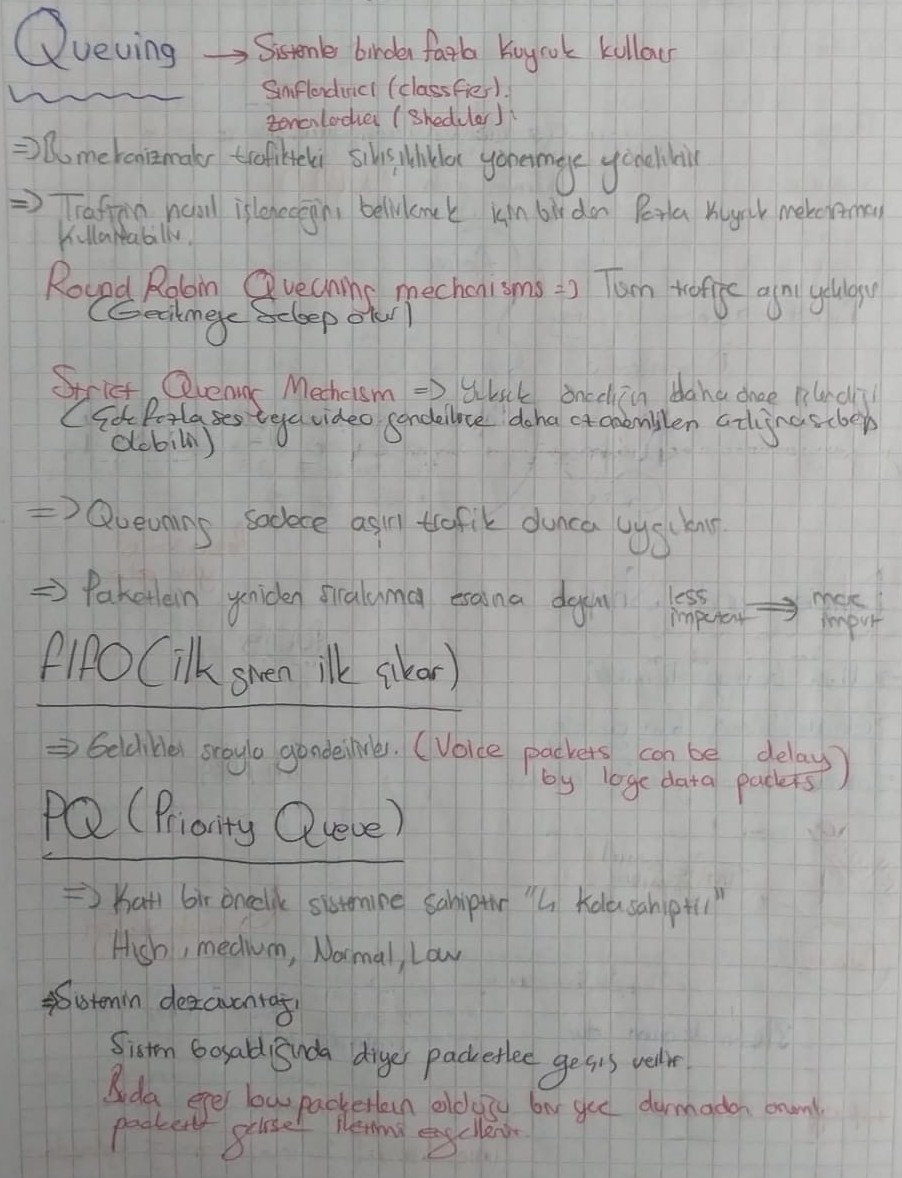 Queuing → Sistemler birden fazla kuyruk kullanır
Sınıflandırıcı (classfier).
zamanlayıcı (Sheduler).
⇒ Bu mekanizmalar trafikteki sıkışıklıkları yönetmeye yöneliktir
⇒ Trafiğin nasıl işleneceğini belirlemek için birden fazla kuyruk mekanizması
kullanabilir.
Round Robin Queuning mechanisms ⇒ Tüm trafiğe aynı yaklaşır
(Gecikmeye Sebep olur)
Strict Queuing Mechcism ⇒ Yüksek önceliğin daha önce
(Çok fazla ses veya video gönderilirse daha az önemlilen açlığına sebep
olabilir)
⇒ Queuning sadece aşırı trafik durunca uygulanır.
⇒ Paketlein yeniden sıralama esasına dayanır less ⇒ more
importent import
FIFO (ilk giren ilk çıkar)
⇒ Geldikleri sırayla gönderilirler. (Voice packets can be delay
by large data packets)
PQ (Priority Queue)
⇒ Katı bir öncelik sistemine sahiptir "4 Kola sahiptir"
High, medium, Normal, Low
⇒ Sistemin dezavantajı
Sistem boşaldığında diğer packetlere geçiş verilir.
Buda eğer low packetlein olduğu bir yere durmadan önemli
packert gelirse iletimi engellenir.